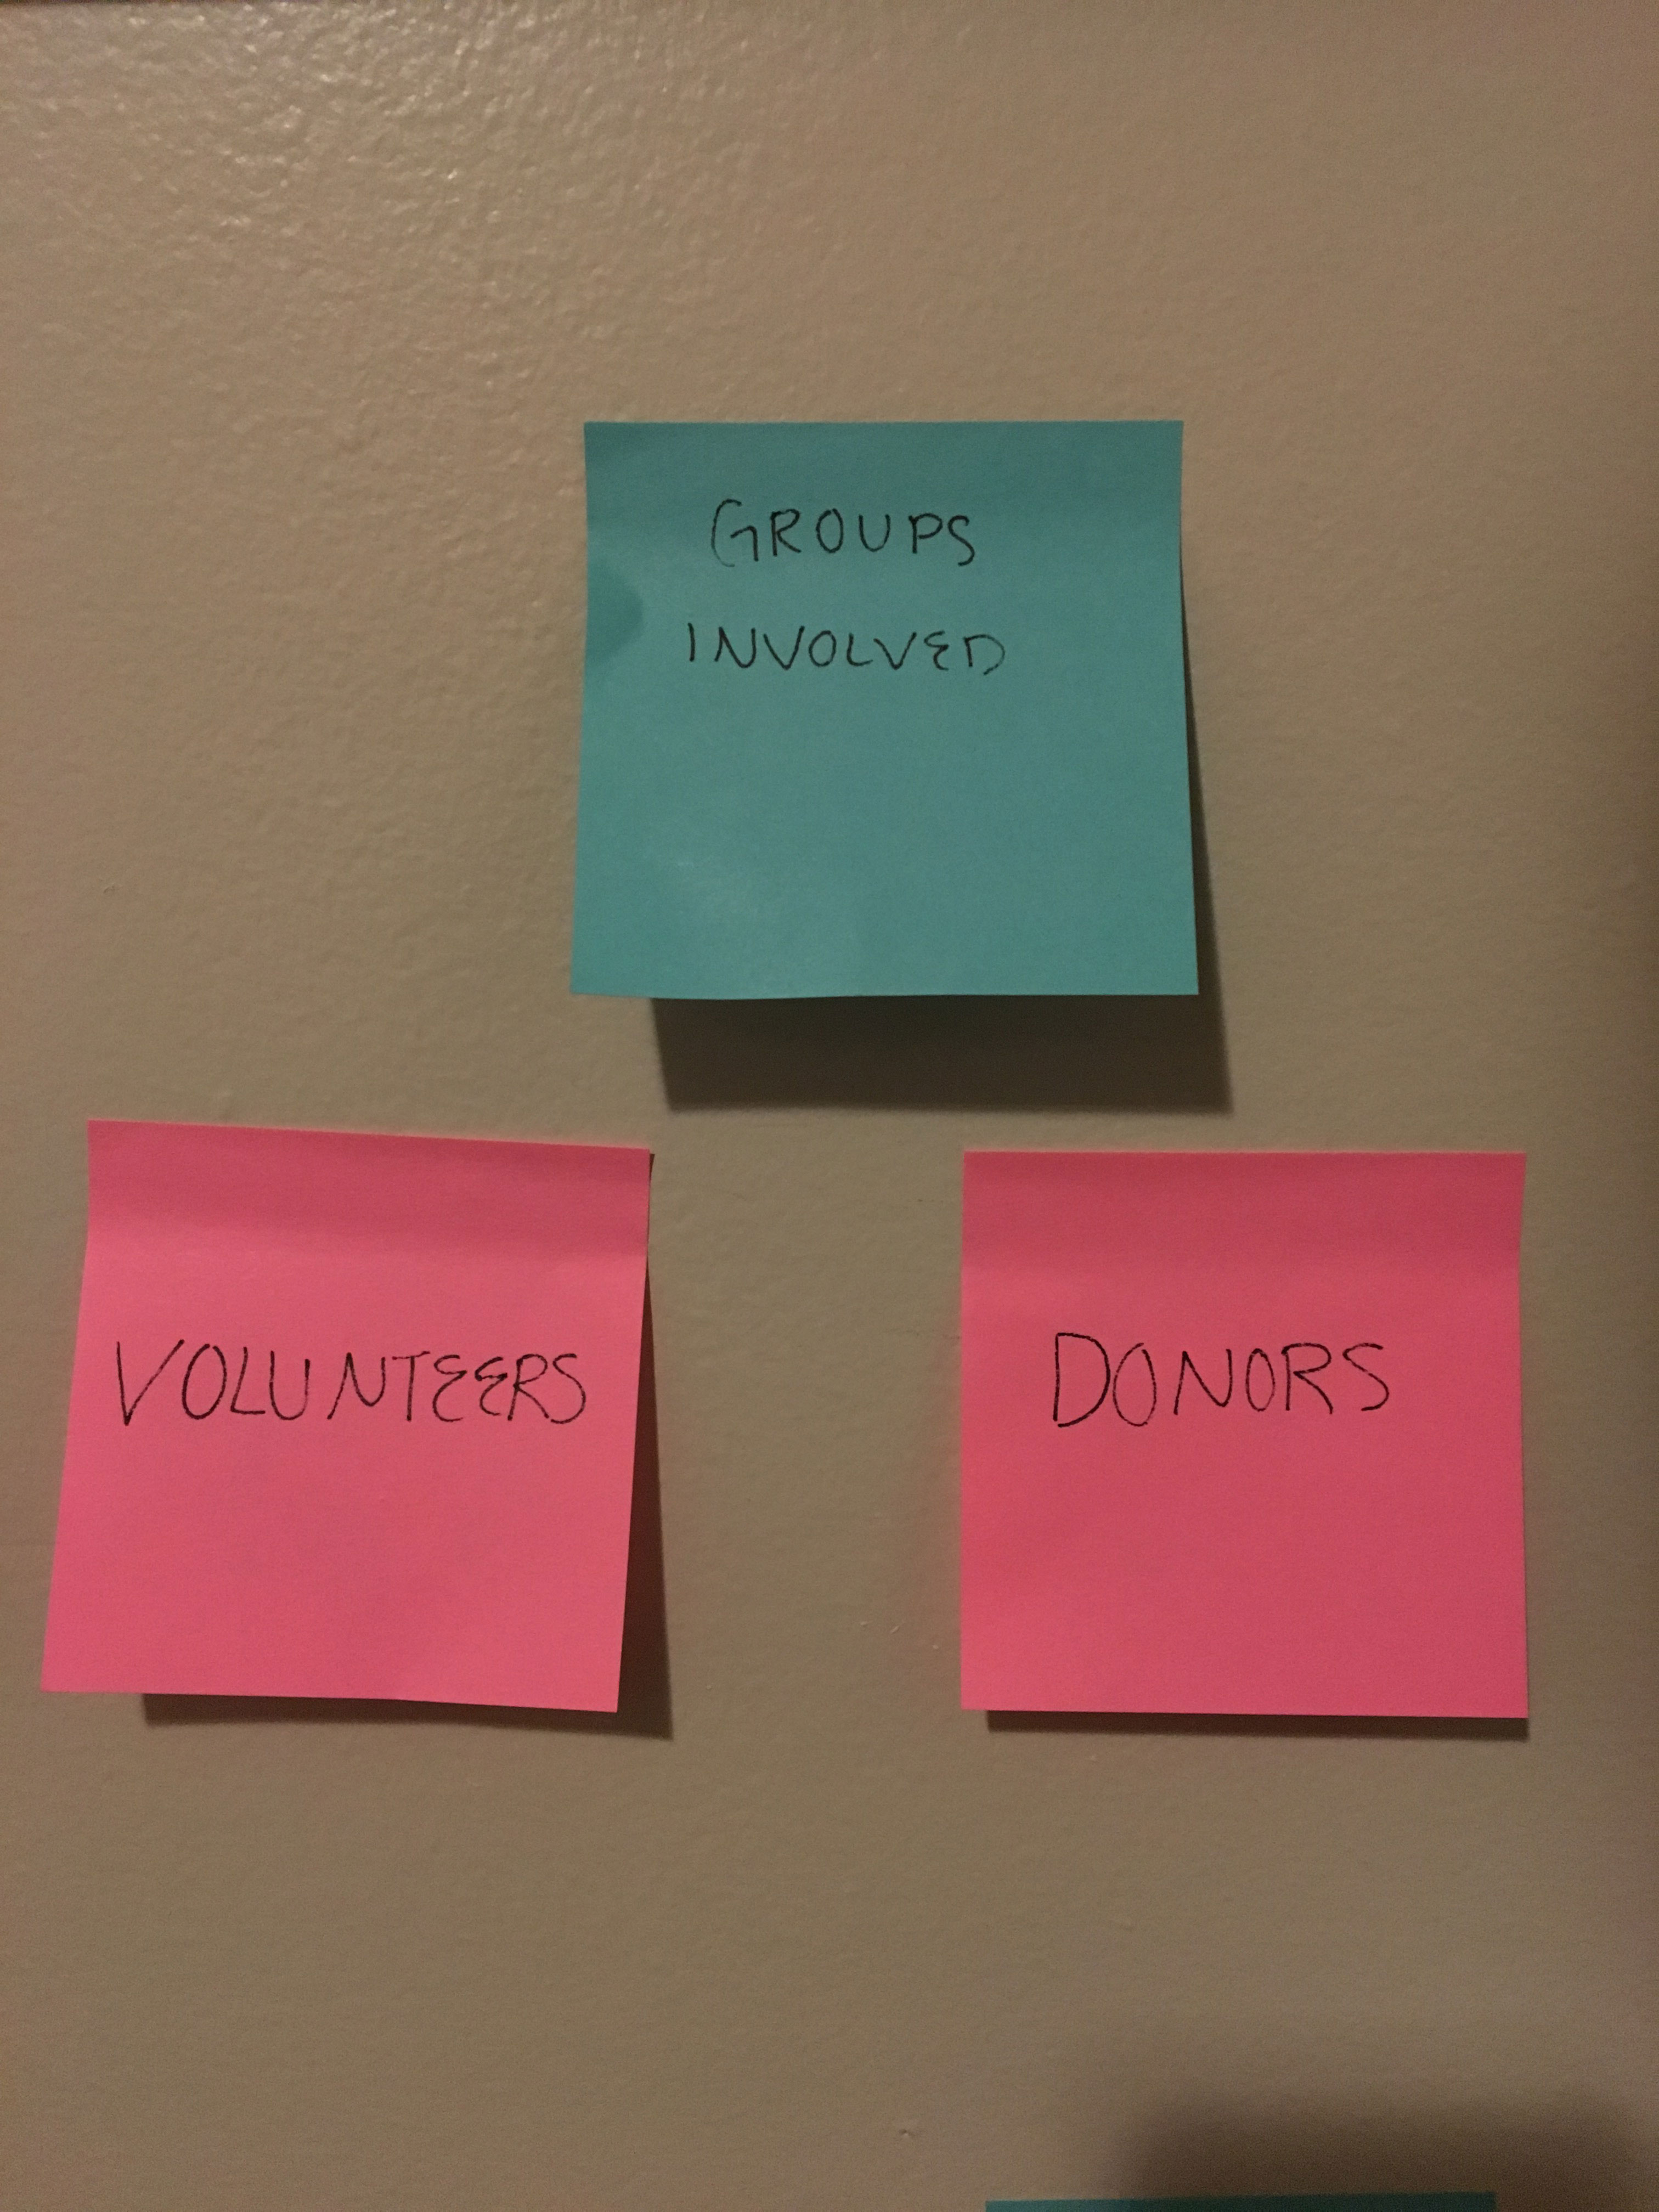 GROUPS
INVOLVED
VOLUNTEERS
DONORS